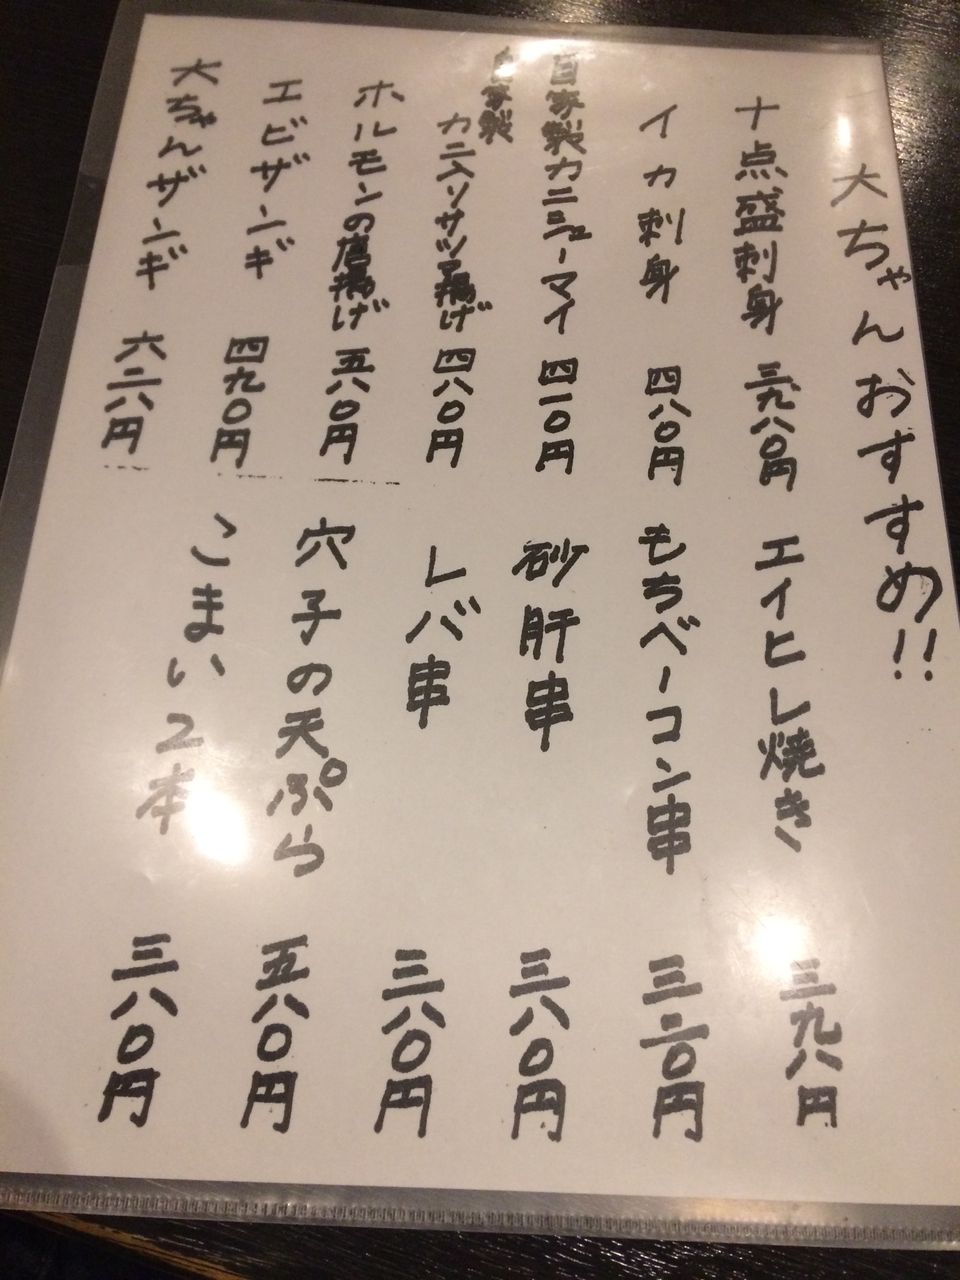 大ちゃんおすすめ!!
十点盛刺身 三九八〇円
イカ刺身 四八〇円
自家製カニシューマイ 四一〇円
自家製カニ入りサツマ揚げ 四八〇円
ホルモンの唐揚げ 五八〇円
エビザンギ 四九〇円
大ちゃんザンギ 六二八円
エイヒレ焼き 三九八円
もちベーコン串 三二〇円
砂肝串 三八〇円
レバ串 三八〇円
穴子の天ぷら 五八〇円
こまい2本 三八〇円